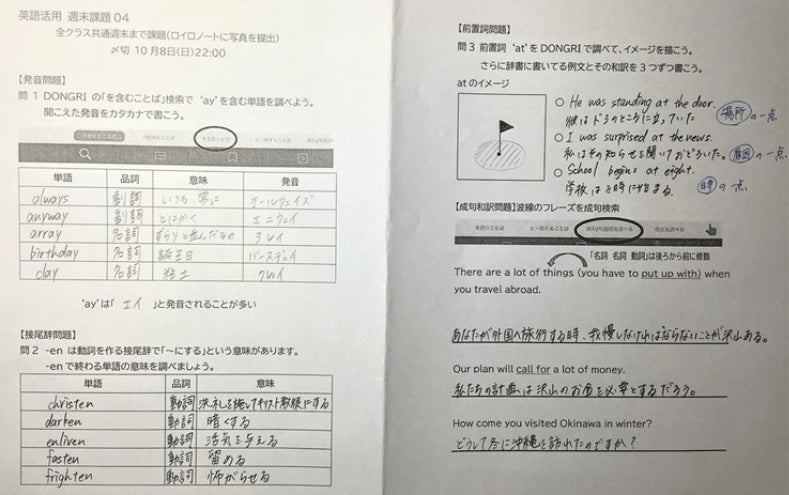 英語活用 週末課題 04
全クラス共通週末まで課題(ロイロノートに写真を提出)
〆切 10月8日(日)22:00
【発音問題】
問1 DONGRI の「を含むことば」検索で 'ay'を含む単語を調べよう。
聞こえた発音をカタカナで書こう。
単語 品詞 意味 発音
always 副詞 いつも、常に オールウェイズ
anyway 副詞 とにかく エニウェイ
array 名詞 ずらりと並んだもの アレイ
birthday 名詞 誕生日 バースデェイ
clay 名詞 粘土 クレイ
'ay'は「 エイ 」と発音されることが多い
【接尾辞問題】
問2 -en は動詞を作る接尾辞で「~にする」という意味があります。
-enで終わる単語の意味を調べましょう。
単語 品詞 意味
christen 動詞 洗礼を施してキリスト教徒にする
darken 動詞 暗くする
enliven 動詞 活気を与える
fasten 動詞 留める
frighten 動詞 怖がらせる
【前置詞問題】
問3 前置詞 'at'をDONGRIで調べて、イメージを描こう。
さらに辞書に書いてる例文とその和訳を3つずつ書こう。
atのイメージ
○ He was standing at the door.
彼はドアのところに立っていた 場所の一点
○ I was surprised at the news.
私はその知らせを聞いておどろいた。 原因の一点
○ School begins at eight.
学校は8時に始まる。 時の一点
【成句和訳問題】波線のフレーズを成句検索
を含むことば と一致することば 成句の用語を調べる 例文を調べる
「名詞 名詞 動詞」は後ろから前に修飾
There are a lot of things (you have to put up with) when
you travel abroad.
あなたが外国へ旅行する時、我慢しなければならないことが沢山ある。
Our plan will call for a lot of money.
私たちの計画は沢山のお金を必要とするだろう。
How come you visited Okinawa in winter?
どうして冬に沖縄を訪れたのですか?